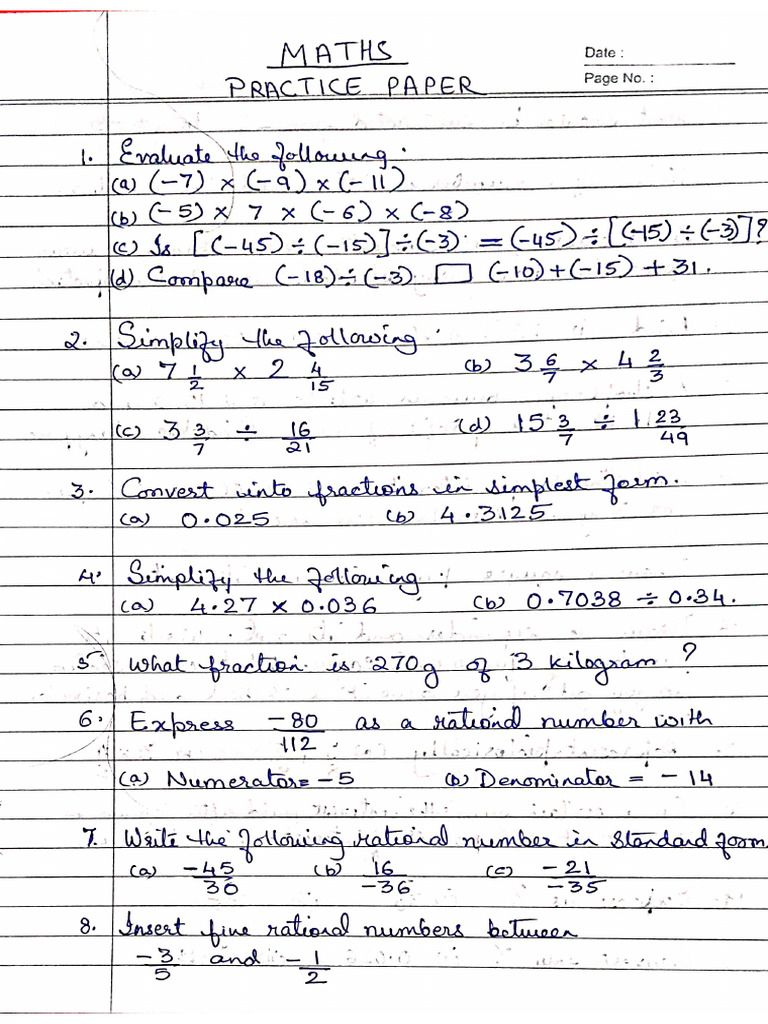 MATHS
Date :
PRACTICE PAPER
Page No. :
1. Evaluate the following :
(a) (-7) × (-9) × (-11)
(b) (-5) × 7 × (-6) × (-8)
(c) Is [(-45) ÷ (-15)] ÷ (-3) = (-45) ÷ [(-15) ÷ (-3)]?
(d) Compare (-18) ÷ (-3) □ (-10) + (-15) + 31.
2. Simplify the following :
(a) 7 1/2 × 2 4/15 (b) 3 6/7 × 4 2/3
(c) 3 3/7 ÷ 16/21 (d) 15 3/7 ÷ 1 23/49
3. Convert into fractions in simplest form.
(a) 0.025 (b) 4.3125
4. Simplify the following :
(a) 4.27 × 0.036 (b) 0.7038 ÷ 0.34.
5. What fraction is 270g of 3 kilogram ?
6. Express -80/112 as a rational number with
(a) Numerator = -5 (b) Denominator = -14
7. Write the following rational number in standard form.
(a) -45/30 (b) 16/-36 (c) -21/-35
8. Insert five rational numbers between
-3/5 and -1/2